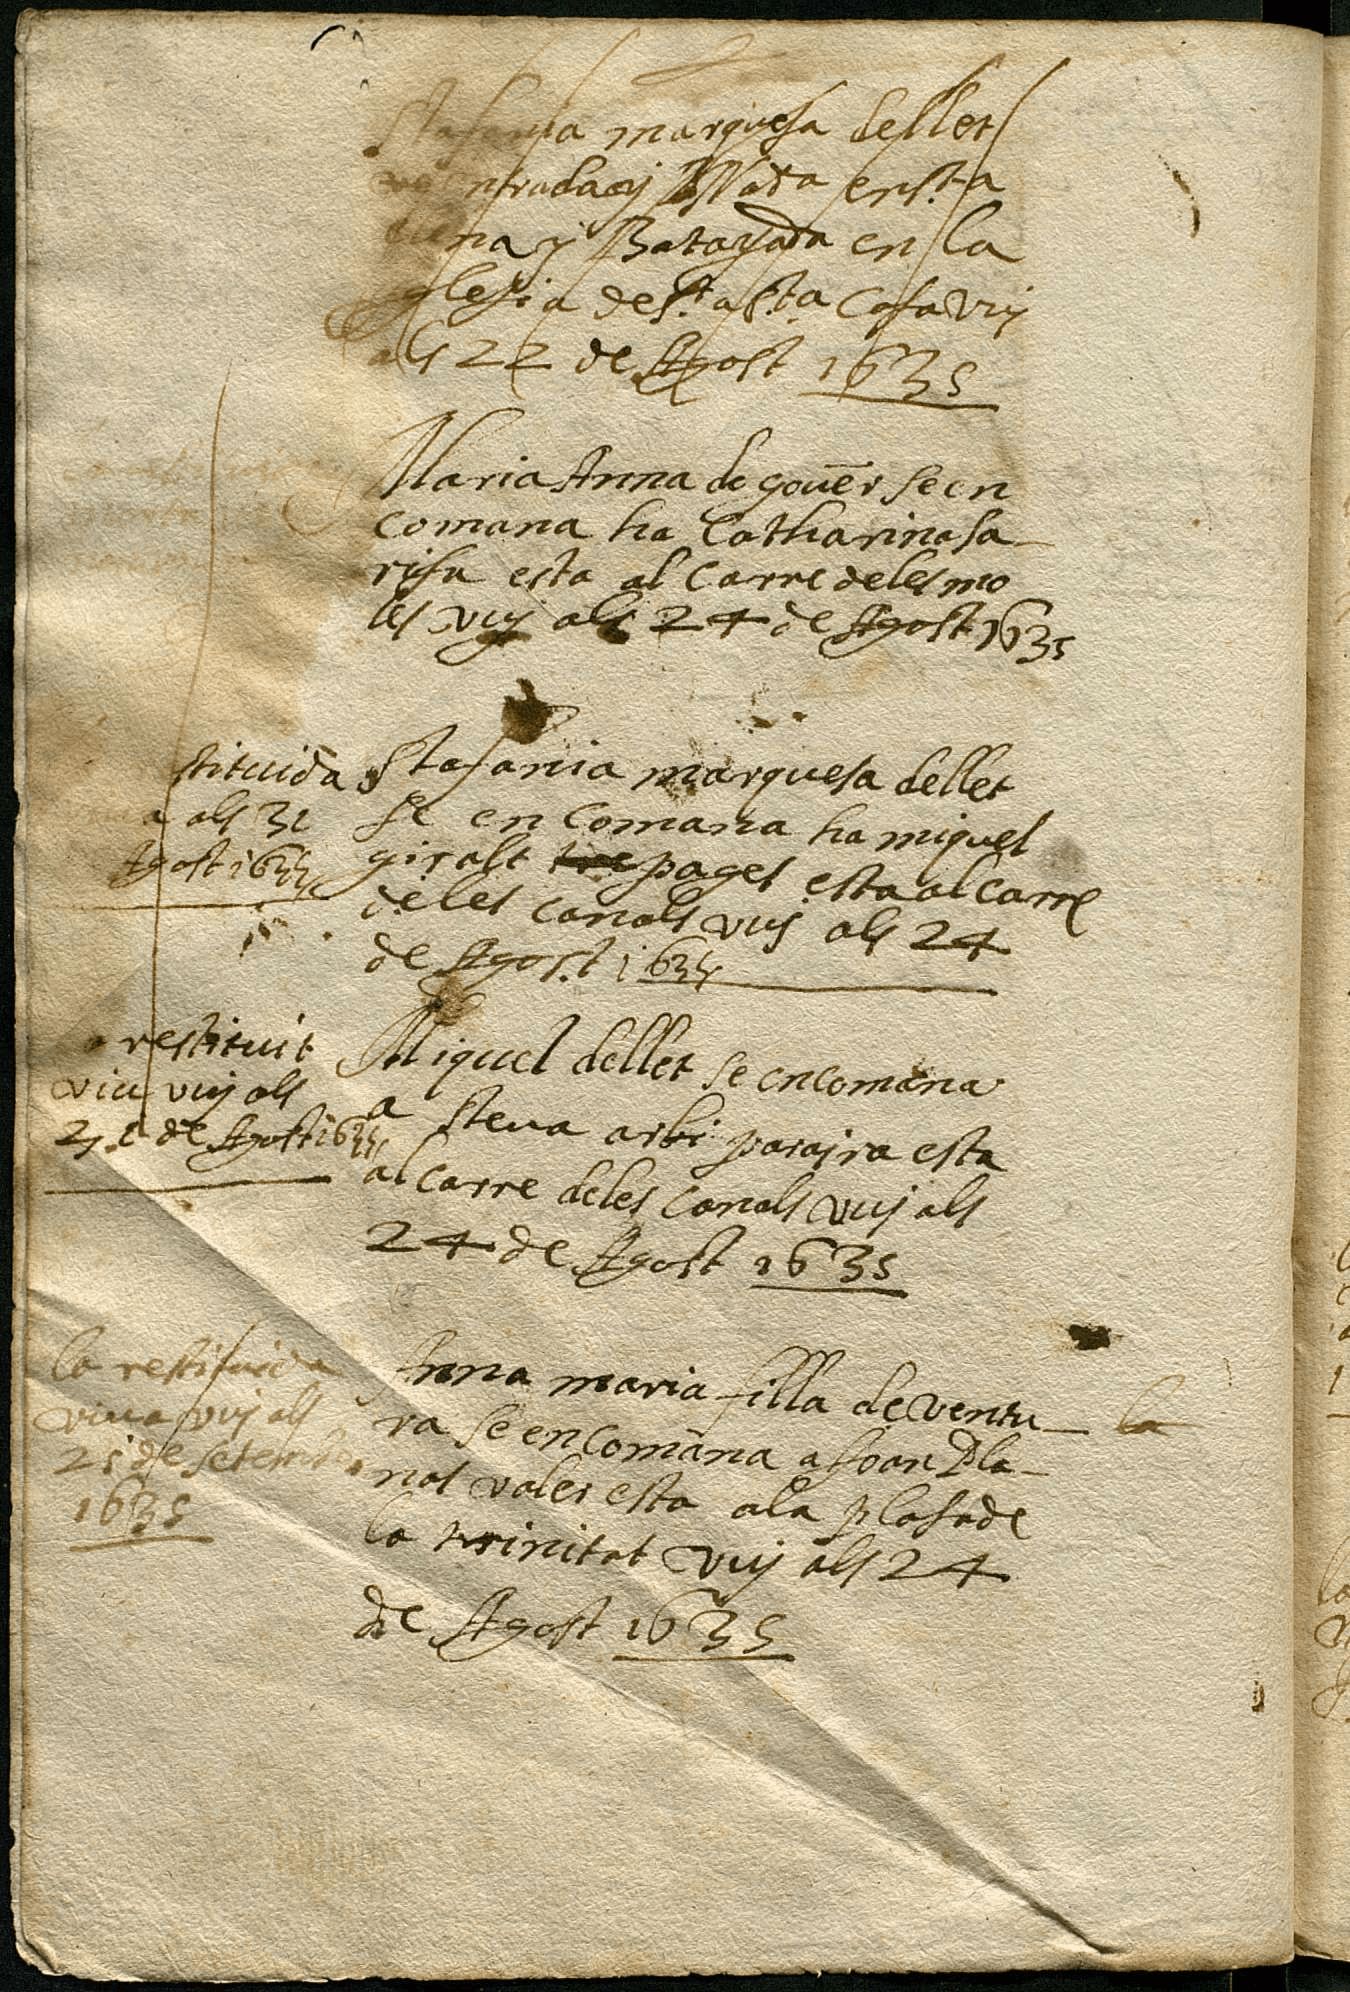 Stafania marquesa dellet
entrada y Possada en sta
cuna y Batajada en la
yglesia de sta sta casa vuy
als 22 de Agost 1635
Maria Anna de gouer se en
comana ha Catharina sa
rifa esta al carre de les mo
les vuy als 24 de Agost 1635
stituida
a als 31
Agost 1635
Stafania marquesa dellet
se en comana ha miquel
giralt pages esta al carre
de les canals vuy als 24
de Agost 1635
restituit
viu vuy als
de Agost 1635
Miquel dellet se encomana
a steva parayra esta
al carre de les canals vuy als
24 de Agost 1635
la restituida
viua vuy als
25 de setembre
1635
Anna maria filla de ventu
ra se encomana a Joan Pla
nas valer esta a la plasa de
la trinitat vuy als 24
de Agost 1635
la